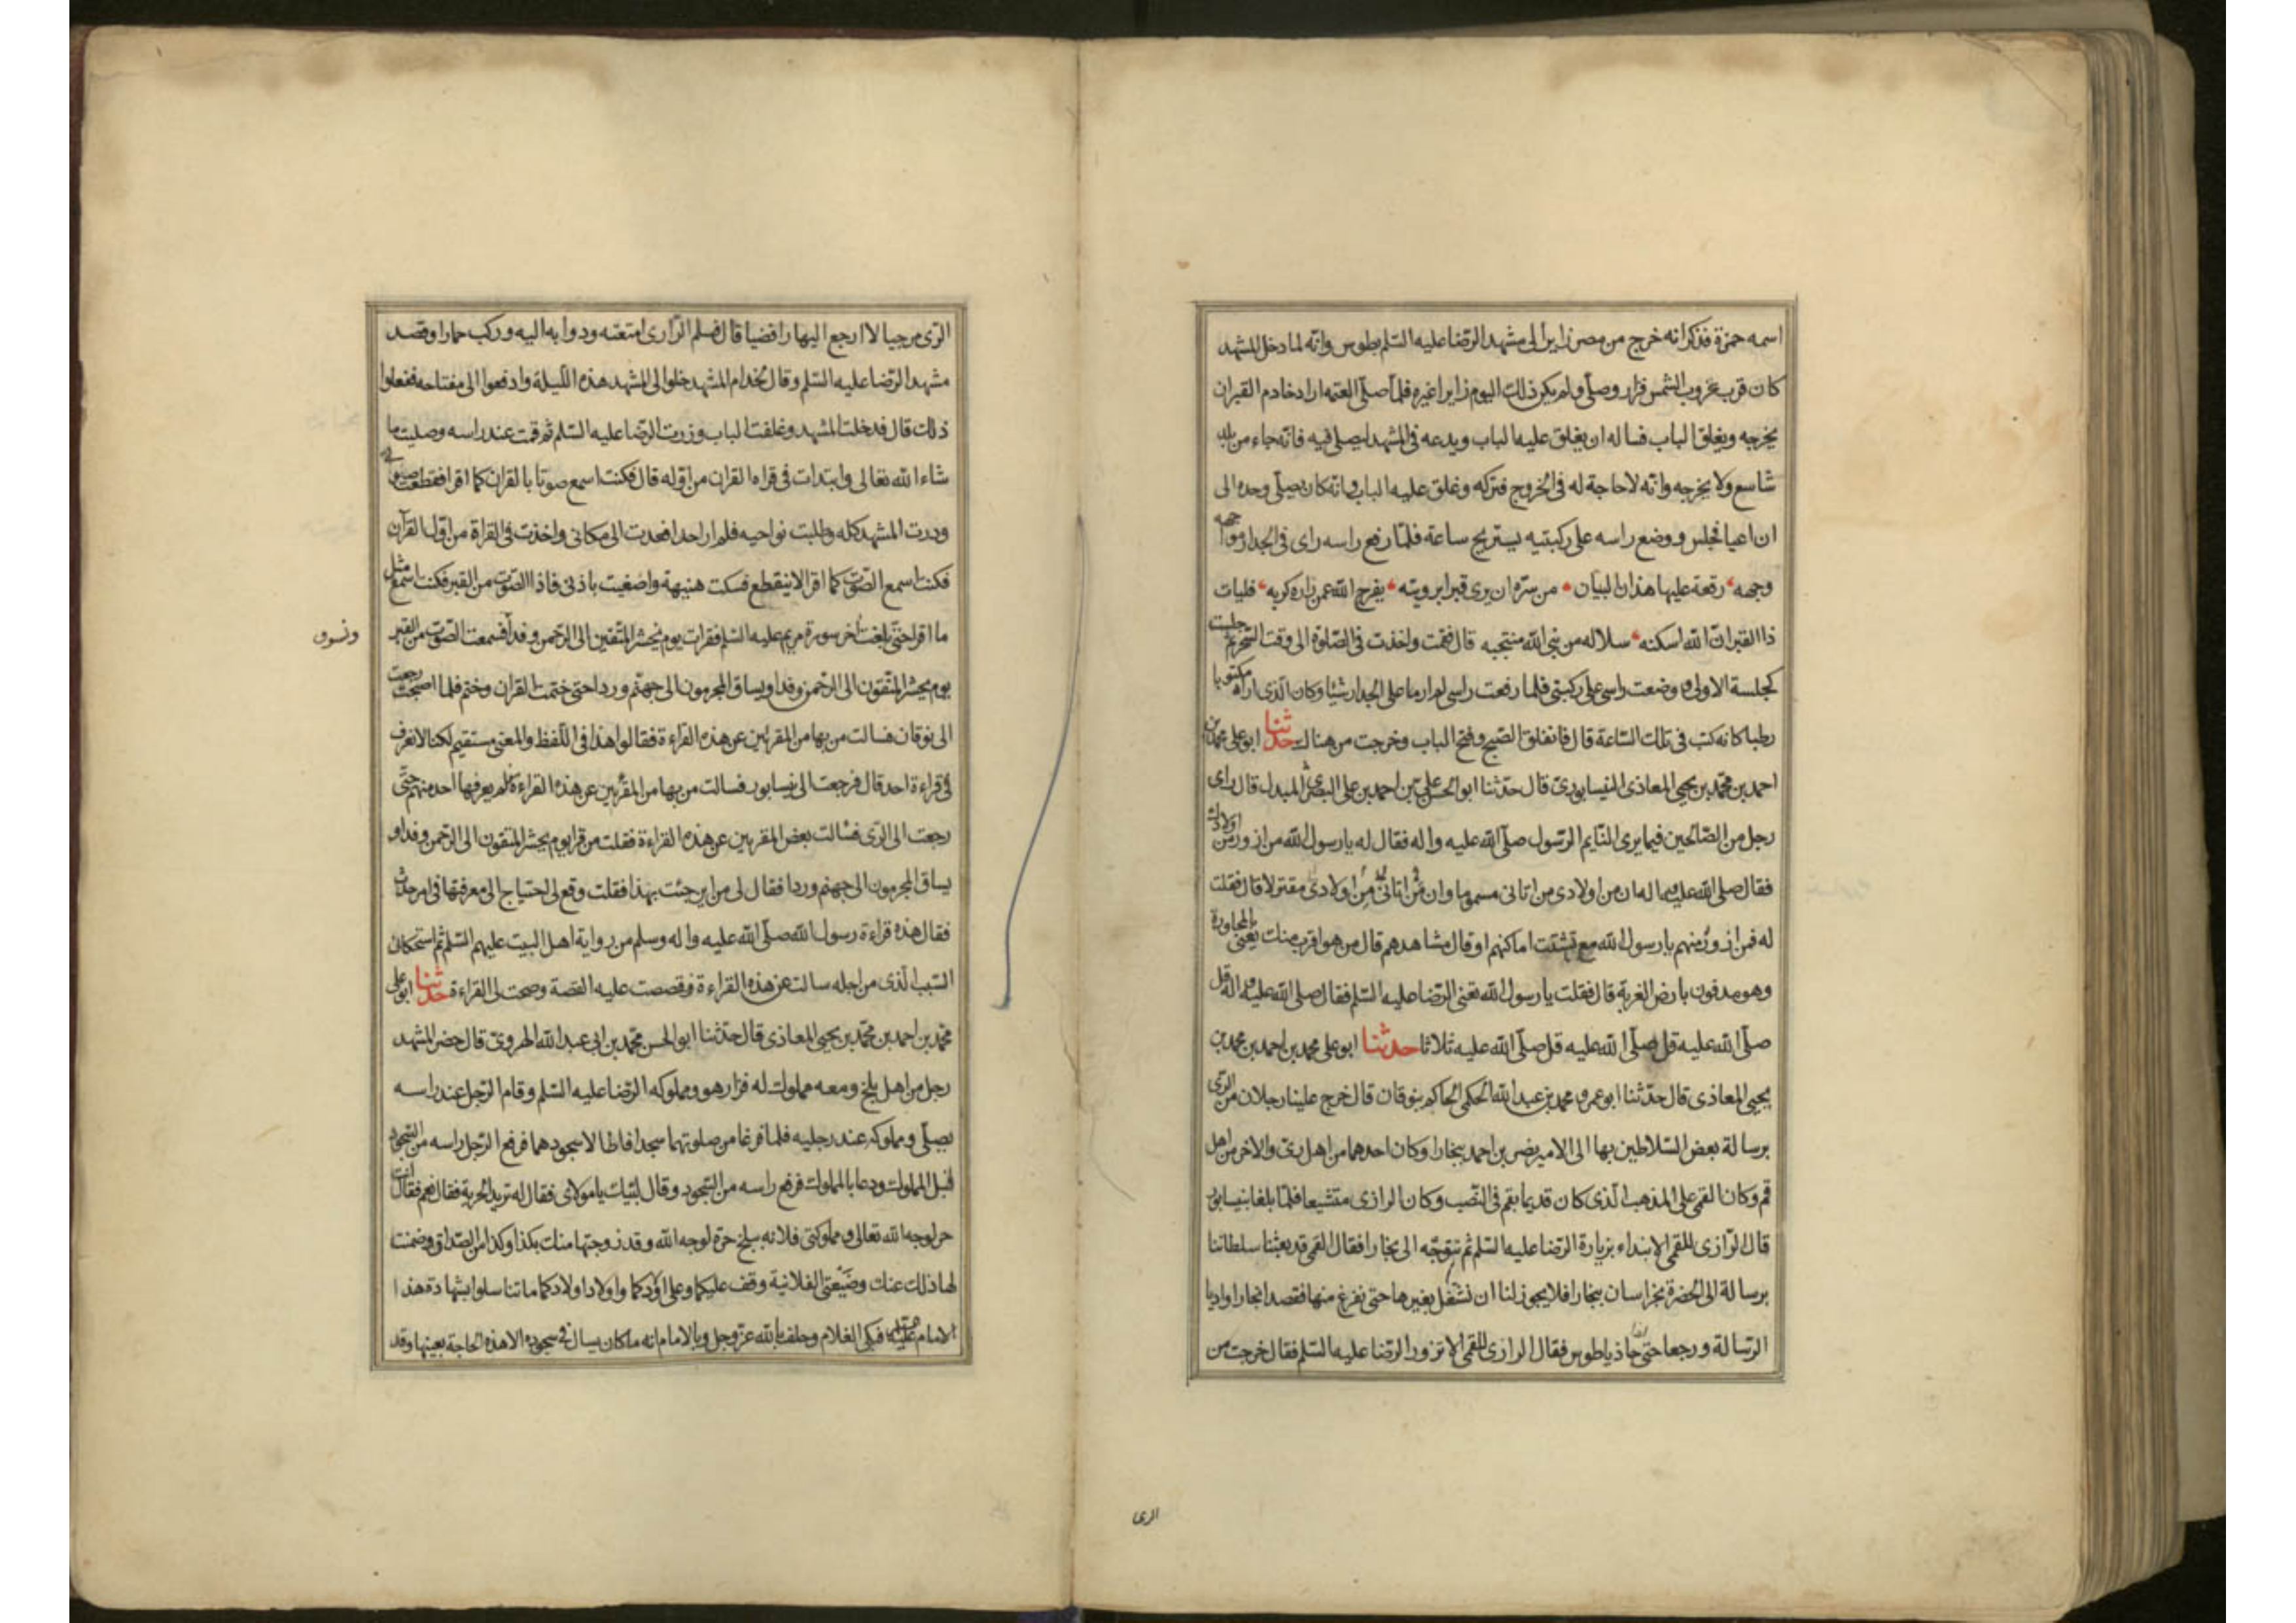 اسمه حمزة فذكر انه خرج من مصر زايرا الى مشهد الرّضا عليه السّلم بطوس وانّه لما دخل المشهد
كان قرب غروب الشمس فزار وصلّى ولم يكن ذلك اليوم زايرا غيره فلمّا صلّى العتمه اراد خادم القبر ان
يخرجه ويغلق الباب فساله ان يغلق عليه الباب ويدعه فى المشهد ليصلى فيه فانّه جاء من بلد
شاسع ولا يخرجه وانّه لاحاجة له فى الخروج فتركه وغلق عليه الباب وانه كان يصلّى وحده الى
ان اعيا فجلس ووضع راسه على ركبتيه يستريح ساعة فلمّا رفع راسه راى فى الجدار مواجهه
وجهه رقعة عليها هذان البيتان من سرّه ان يرى قبرا برويته يفرج الله عمن زاره كربه فليات
ذا القبر انّ الله اسكنه سلاله من نبى الله منتجبه قال فقمت واخذت فى الصّلوة الى وقت السّحر ثم جلست
كجلسة الاولى ووضعت راسى على ركبتى فلما رفعت راسى لم ار ما على الجدار شيئا وكان الّذى اراه مكتوبا
رطبا كانه كتب فى تلك السّاعة قال فانفلق الصّبح وفتح الباب وخرجت من هناك حدثنا ابو على محمد بن
احمد بن محمّد بن يحيى المعاذى النيسابورىّ قال حدّثنا ابو الحسن علىّ بن احمد بن على البصرى المبدل قال راى
رجل من الصّالحين فيما يرى النّايم الرّسول صلّى الله عليه واله فقال له يا رسول الله من ازور من اولادك
فقال صلى الله عليه واله ان من اولادى من اتانى مسموما وان من اتانى من اولادى مقتولا قال فقلت
له فمن ازور منهم يا رسول الله مع تشتت اماكنهم او قال مشاهدهم قال من هو اقرب منك يعنى بالمجاورة
وهو مدفون بارض الغربة قال فقلت يا رسول الله تعنى الرّضا عليه السّلم فقال صلى الله عليه واله قل
صلّى الله عليه قل صلّى الله عليه قل صلّى الله عليه ثلاثا حدثنا ابو على محمد بن احمد بن محمد بن
يحيى المعاذى قال حدّثنا ابو عمرو محمد بن عبد الله الحكمى الحاكم بنوقان قال خرج علينا رجلان من الرّى
برسالة بعض السّلاطين بها الى الامير نصر بن احمد ببخارا وكان احدهما من اهل رىّ والاخر من اهل
قم وكان القمى على المذهب الّذى كان قديما بقم فى النّصب وكان الرازى متشيعا فلمّا بلغا بنيسابور
قال الرّازى للقمى الا نبتداء بزيارة الرّضا عليه السّلم ثم نتوجّه الى بخارا فقال القمى قد بعثنا سلطاننا
برسالة الى الحضرة بخراسان ببخارا فلا يجوز لنا ان نشغل بغيرها حتى نفرغ منها فقصدا بخارا واديا
الرّسالة ورجعا حتى حاذيا طوس فقال الرازى للقمى الا تزور الرّضا عليه السّلم فقال خرجت من
الرى
الرّى مرجيا لا ارجع اليها رافضيا قال فسلم الرّازى امتعته ودوابه اليه وركب حمارا وقصد
مشهد الرّضا عليه السّلم وقال لخدام المشهد خلوا لى المشهد هذه اللّيلة وادفعوا الى مفتاحه ففعلوا
ذلك قال فدخلت المشهد وغلقت الباب وزرت الرّضا عليه السّلم ثم قمت عند راسه وصليت ما
شاء الله تعالى وابتدات فى قراه القران من اوّله قال فكنت اسمع صوتا بالقران كما اقرا فقطعت صوتى
ودرت المشهد كله وطلبت نواحيه فلم ار احدا فعدت الى مكانى واخذت فى القراة من اوّل القرآن
فكنت اسمع الصّوت كما اقرا لا ينقطع فسكت هنيهة واصغيت باذنى فاذا الصّوت من القبر فكنت اسمع مثل
ما اقرا حتى بلغت اخر سورة مريم عليه السّلم فقرات يوم نحشر المتّقين الى الرّحمن وفدا فسمعت الصّوت من القبر
يوم يحشر المتّقون الى الرّحمن وفدا ويساق المجرمون الى جهنّم وردا حتى ختمت القران وختم فلما اصبحت رجعت
الى نوقان فسالت من بها من المقرئين عن هذه القراءة فقالوا هذا فى اللّفظ والمعنى مستقيم لكنّا لا نعرف
فى قراءة احد قال فرجعت الى نيسابور فسالت من بها من المقرئين عن هذه القراءة فلم يعرفها احد منهم حتّى
رجعت الى الرّى فسالت بعض المقرئين عن هذه القراءة فقلت من قرا يوم يحشر المتّقون الى الرّحمن وفدا و
يساق المجرمون الى جهنم وردا فقال لى من اين جئت بهذا فقلت وقع لى احتياج الى معرفتها فى امر حدث
فقال هذه قراءة رسول الله صلّى الله عليه واله وسلم من رواية اهل البيت عليهم السّلم ثم استحكانى
السّبب الّذى من اجله سالت عن هذه القراءة فقصصت عليه القصة وصحت لى القراءة حدثنا ابو على
محمّد بن احمد بن محمّد بن يحيى المعاذى قال حدّثنا ابو الحسن محمّد بن ابى عبد الله الهروىّ قال حضر المشهد
رجل من اهل بلخ ومعه مملوك له فزار هو ومملوكه الرّضا عليه السّلم وقام الرّجل عند راسه
يصلّى ومملوكه عند رجليه فلمّا فرغا من صلوتهما سجدا فاطالا سجودهما فرفع الرّجل راسه من السّجود
قبل المملوك ودعا بالمملوك فرفع راسه من السّجود وقال لبّيك يا مولاى فقال له تريد الحرية فقال نعم فقال انت
حر لوجه الله تعالى ومملوكتى فلانه ببلخ حرة لوجه الله وقد زوجتها منك بكذا وكذا من الصّداق وضمنت
لها ذلك عنك وضيعتى الفلانية وقف عليكما وعلى اولادكما واولاد اولادكما ما تناسلوا بشهادة هذا
الامام عليه السلم فبكى الغلام وحلف بالله عزّ وجل وبالامام انه ما كان يسال فى سجوده الا هذه الحاجة بعينها وقد